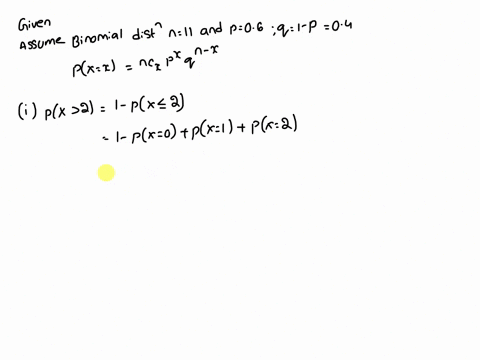 Given
Assume Binomial distⁿ n=11 and p=0.6 ; q=1-p=0.4
p(x=x) = ncₓ pˣ qⁿ⁻ˣ
(i) p(x>2) = 1-p(x≤2)
= 1- p(x=0)+p(x=1)+ p(x=2)